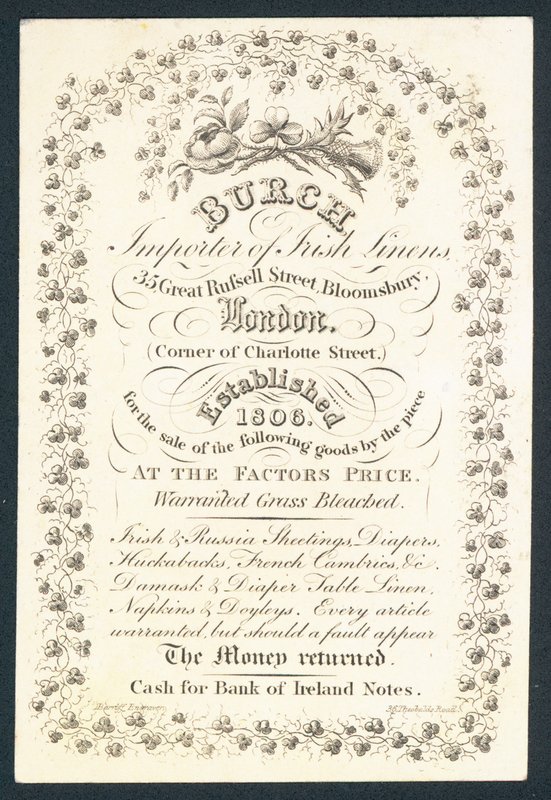 BURCH
Importer of Irish Linens,
35 Great Ruſsell Street, Bloomsbury,
London.
(Corner of Charlotte Street.)
Established
1806.
for the sale of the following goods by the piece
AT THE FACTORS PRICE.
Warranted Grass Bleached.
Irish & Russia Sheetings, Diapers,
Huckabacks, French Cambrics, &c.
Damask & Diaper Table Linen,
Napkins & Doyleys. Every article
warranted, but should a fault appear
The Money returned.
Cash for Bank of Ireland Notes.
Engraver
36, Theobalds Road.